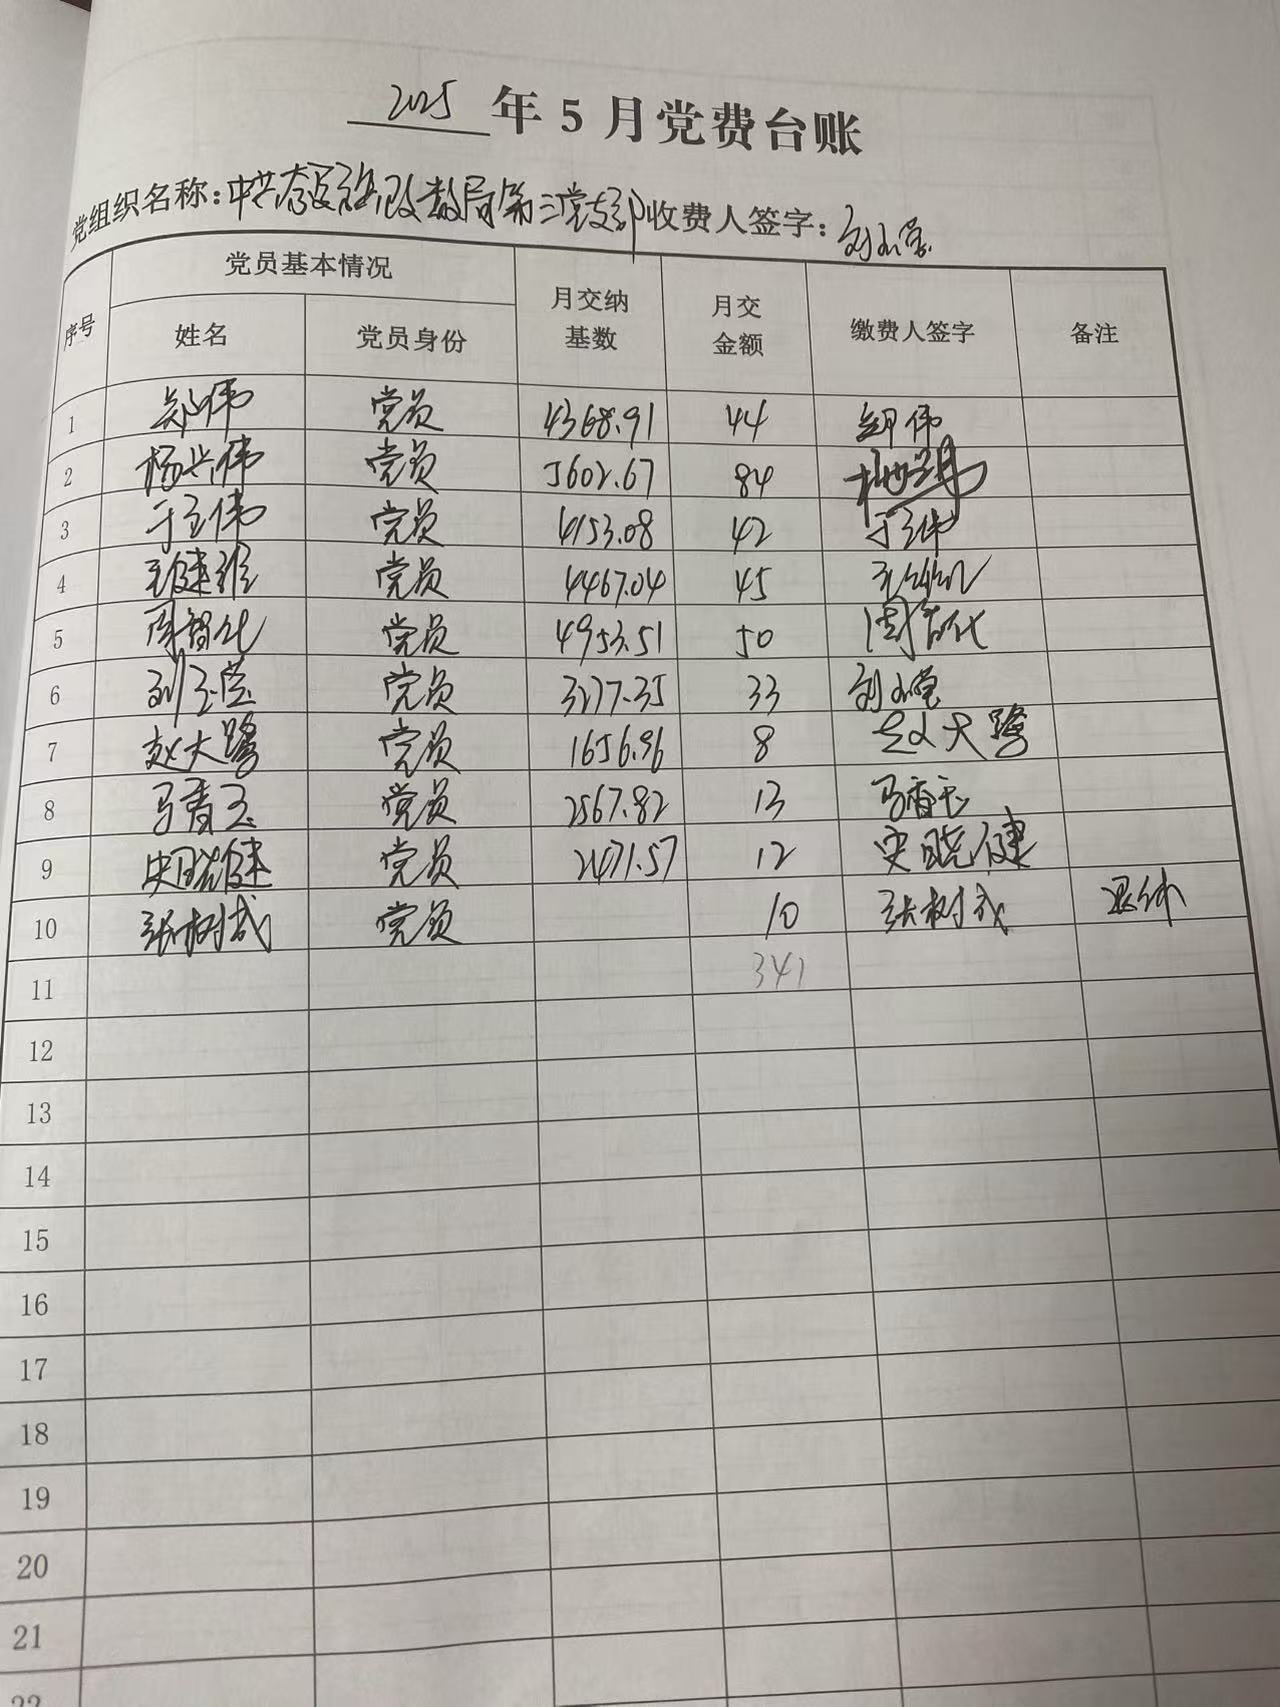 2025年5月党费台账
党组织名称:中共奈曼旗政数局第三党支部 收费人签字:刘玉莹
序号 党员基本情况 月交纳基数 月交金额 缴费人签字 备注
姓名 党员身份
1 郑伟 党员 4368.91 44 郑伟
2 杨兴伟 党员 5602.67 84
3 于玉伟 党员 4153.08 42 于玉伟
4 王健维 党员 4467.04 45
5 周智化 党员 4953.51 50 周智化
6 刘玉莹 党员 3277.35 33 刘玉莹
7 赵大鹭 党员 1656.96 8 赵大鹭
8 马香玉 党员 2567.82 13 马香玉
9 史晓健 党员 2471.57 12 史晓健
10 张树成 党员 10 张树成 退休
11 341
12
13
14
15
16
17
18
19
20
21
22